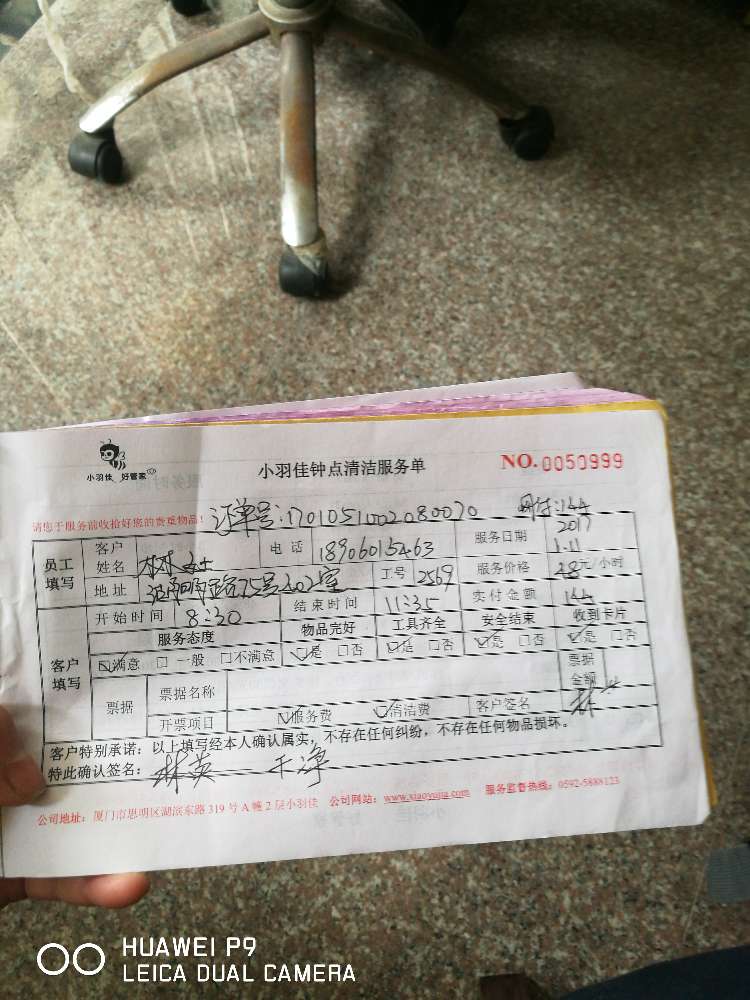 小羽佳 好管家
小羽佳钟点清洁服务单
NO. 0050999
请您于服务前收拾好您的贵重物品!
订单号:1701051002080070
网付:144
员工填写
客户姓名 林女士
电话 18906015463
服务日期 2017 1.11
地址 湖明路75号202室
工号 2569
服务价格 28元/小时
开始时间 8:30
结束时间 11:35
实付金额 144
客户填写
服务态度 物品完好 工具齐全 安全结束 收到卡片
满意 一般 不满意 是 否 是 否 是 否 是 否
票据
票据名称
票据金额
开票项目 服务费 清洁费
客户签名 林
客户特别承诺:以上填写经本人确认属实,不存在任何纠纷,不存在任何物品损坏。
特此确认签名: 林英 干净
公司地址:厦门市思明区湖滨东路 319 号 A 幢 2 层小羽佳 公司网站:www.xiaoyujia.com 服务监督热线:0592-5888123
HUAWEI P9
LEICA DUAL CAMERA